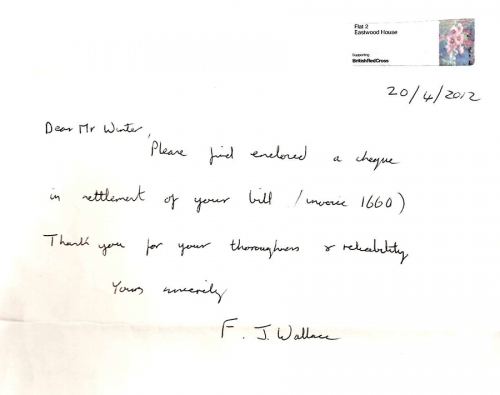 Flat 2
Eastwood House
Supporting
BritishRedCross
20/4/2012
Dear Mr Winter,
Please find enclosed a cheque
in settlement of your bill (invoice 1660)
Thank you for your thoroughness & reliability
Yours sincerely
F. J. Wallace